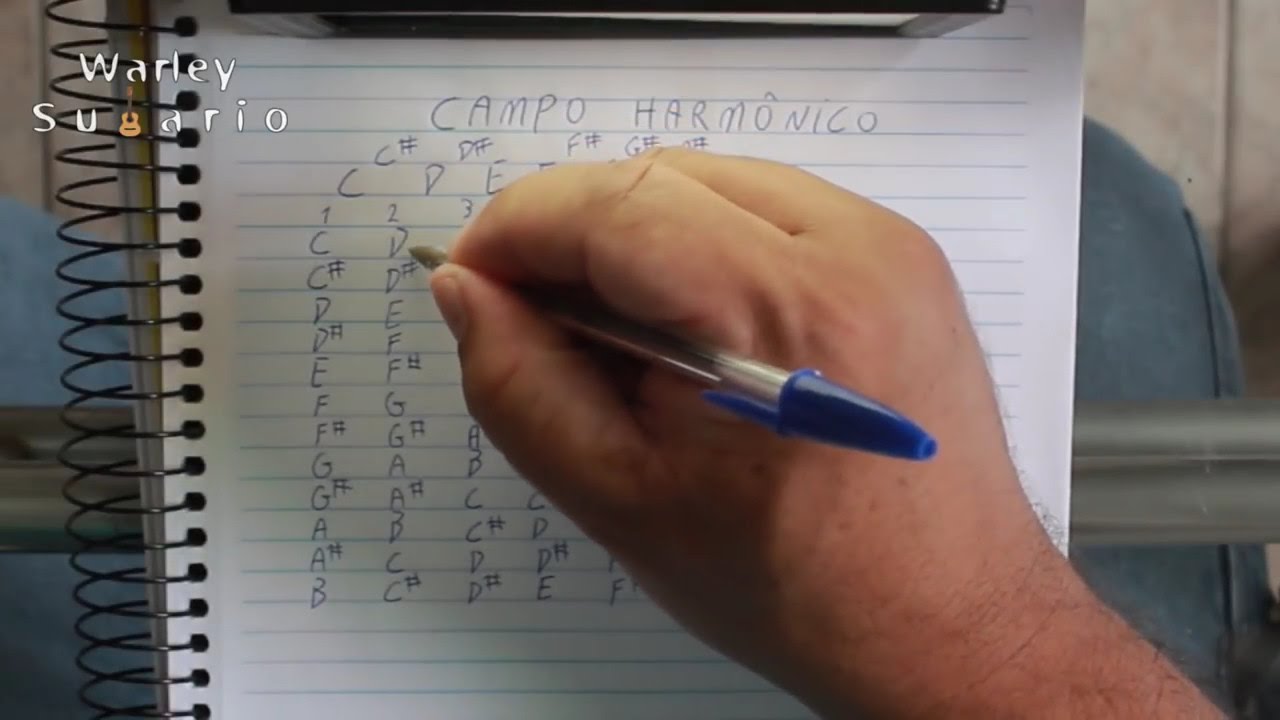 Warley
Su ario
CAMPO HARMÔNICO
C# D# F# G#
C D E
1 2 3
C D
C# D#
D E
D# F
E F#
F G
F# G# A
G A B
G# A# C
A B C# D
A# C D D#
B C# D# E F#